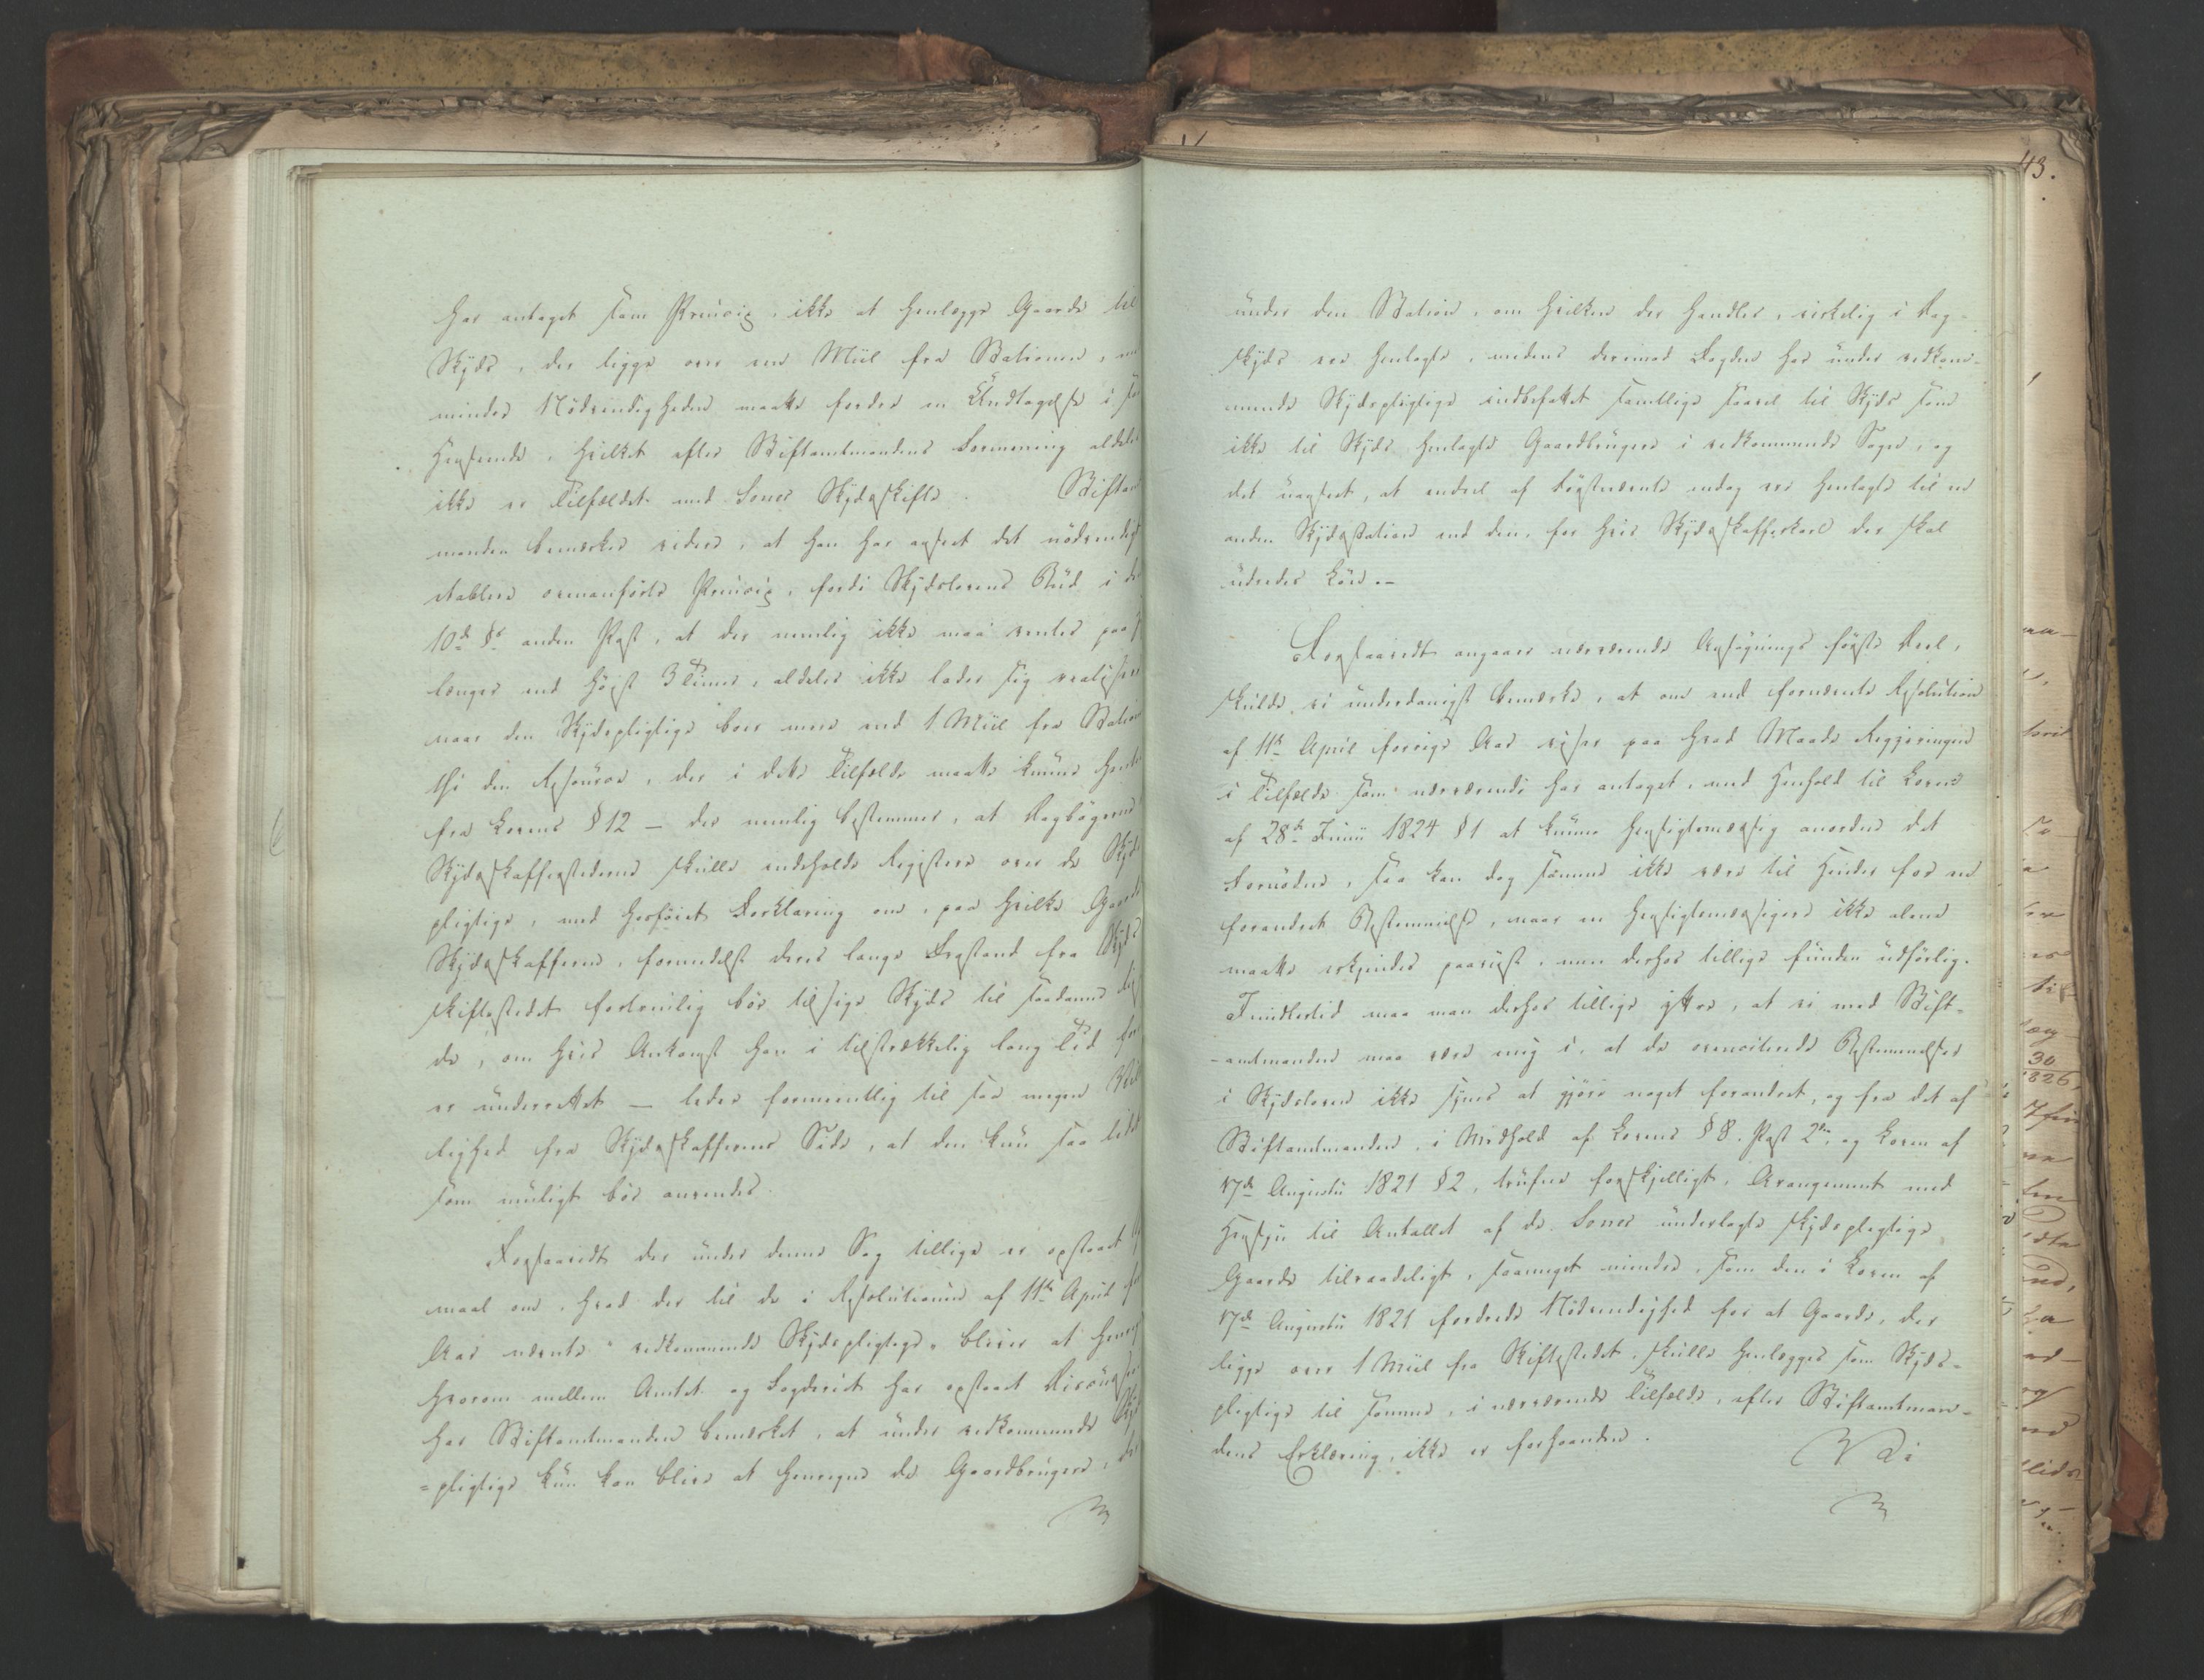 har antaget som Princip, ikke at henlægge Gaarde til
Skyds, der ligge over een Miil fra Stationen, med
mindre Nödvendigheden maatte fordre en Undtagelse i saa
Henseende, hvilket efter Stiftamtmandens Formening aldeles
ikke er Tilfældet med Soner Skydsskifte. Stiftamt
manden bemærker videre, at han har anseet det nödvendigt
etablere ovenanförte Princip, fordi Skydslovens Bud i dens
10de § anden Post, at der nemlig ikke maa ventes paa
længer end höist 3 Timer, aldeles ikke lader sig realisere
naar den Skydspligtige boer mere end 1 Miil fra Station
thi den Resource, der i dette Tilfælde maatte kunne hentes
fra Lovens § 12 – der nemlig bestemmer, at Dagbögerne
Skydsskafferstederne skulle indeholde Registere over de Skyds
pligtige, med hosföiet Forklaring om, paa hvilke Gaarde
Skydsskafferen, formedelst deres lange Frastand fra Skyds
skiftestedet fortrinlig bör tilsige Skyds til saadanne
de, om hvis Ankomst han i tilstrækkelig lang Tid for
er underrettet – leder formeentlig til saa megen Vil
lighed fra Skydsskafferens Side, at den kun saa lidet
som muligt bör anvendes.
Forsaavidt der under denne Sag tillige er opstaaet
maal om, hvad der til de i Resolutionen af 11te April f
Aar nævnte "vedkommende Skydspligtige" bliver at henregne
hvorom mellem Amtet og Fogderiet har opstaaet Discussion
har Stiftamtmanden bemærket, at under vedkommende Skyds
=pligtige kun kan blive at henregne de Gaardbrugere, der
43.
under den Station, om hvilken der handles, virkelig i Dag-
skyds ere henlagte, medens derimod Fogden har under vedkom-
mende Skydspligtige indbefattet samtlige saavel til Skyds som
ikke til Skyds henlagte Gaardbrugere i vedkommende Sogne, og
det uagtet, at endeel af Sidstnævnte endog ere henlagte til en
anden Skydsstation end den, for hvis Skydsskafferkarl der skal
udredes Korn. –
Forsaavidt angaaer nærværende Ansögnings förste Deel,
skulde vi underdanigst bemærke, at om end fornævnte Resolution
af 11te April forrige Aar viser paa hvad Maade Regjeringen
i Tilfælde som nærværende har antaget, med Henhold til Loven
af 28de Junii 1824 § 1 at kunne hensigtsmæssig anordne det
Fornödne, saa kan dog samme ikke være til Hinder for en
forandret Bestemmelse, naar en hensigtsmæssigere ikke alene
maatte erkjendes paaviist, men derhos tillige funden udförlig.
Imidlertid maa man derhos tillige ytre, at vi med Stift-
-amtmanden maa være enig i, at de ommeldte Bestemmelser
i Skydsloven ikke synes at gjöre noget forandret, og fra det af
Stiftamtmanden, i Medhold af Lovens § 8. Post 2den, og Loven af
17de Augusti 1821 § 2, trufne forskjelligt, Arrangement med
Hensyn til Antallet af de Soner underlagte skydspligtige
Gaarde tilraadeligt, saameget mindre, som den i Loven af
17de Augusti 1821 fordrede Nödvendighed for at Gaarde, der
ligge over 1 Miil fra Skiftestedet, skulle henlægges som Skyds-
pligtige til samme, i nærværende Tilfælde, efter Stiftamtman-
dens Erklæring, ikke er forhaanden.
Vdi